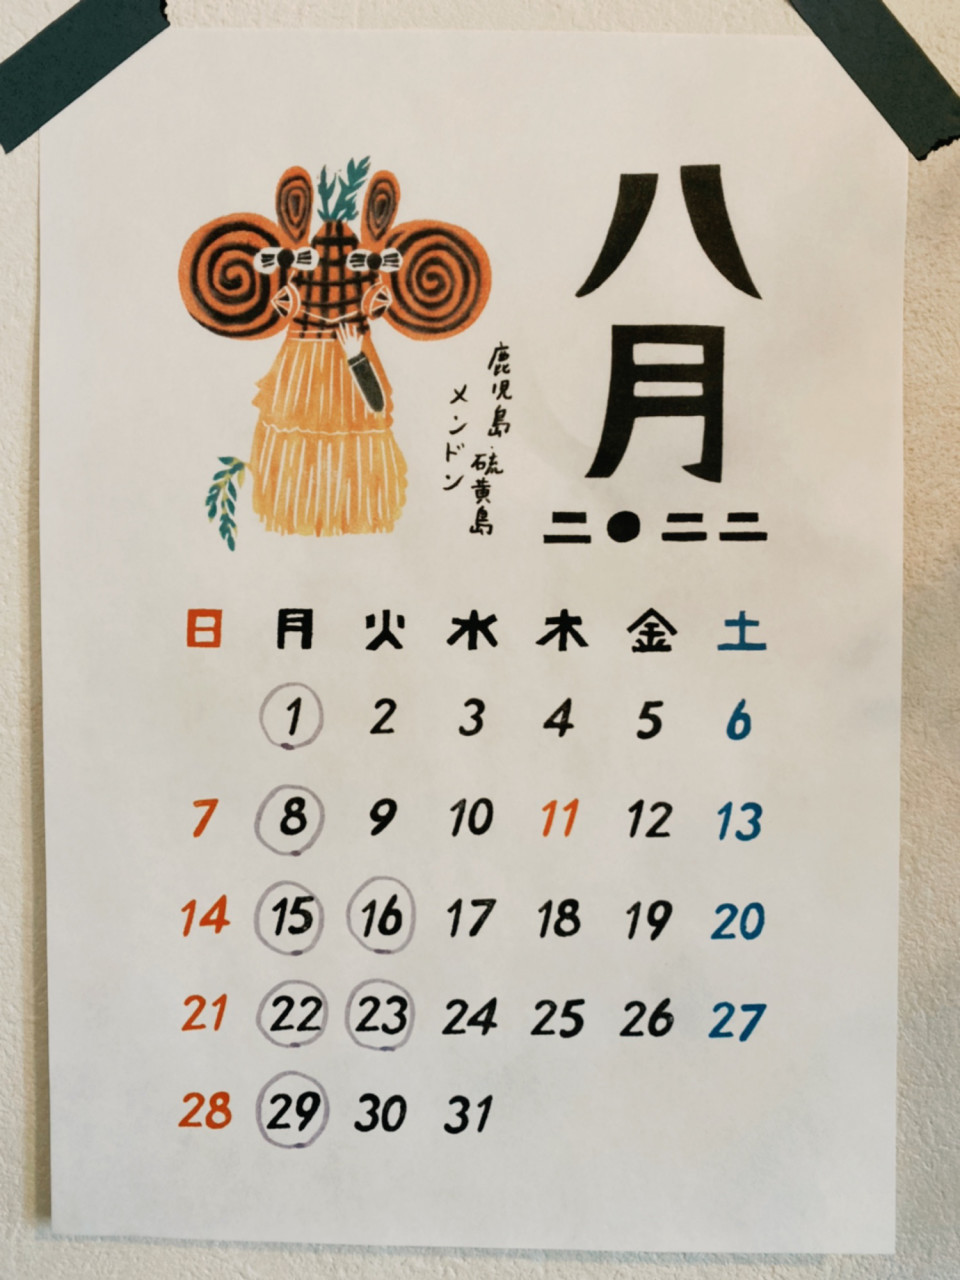 八月
二●二二
鹿児島・硫黄島
メンドン
日 月 火 水 木 金 土
1 2 3 4 5 6
7 8 9 10 11 12 13
14 15 16 17 18 19 20
21 22 23 24 25 26 27
28 29 30 31